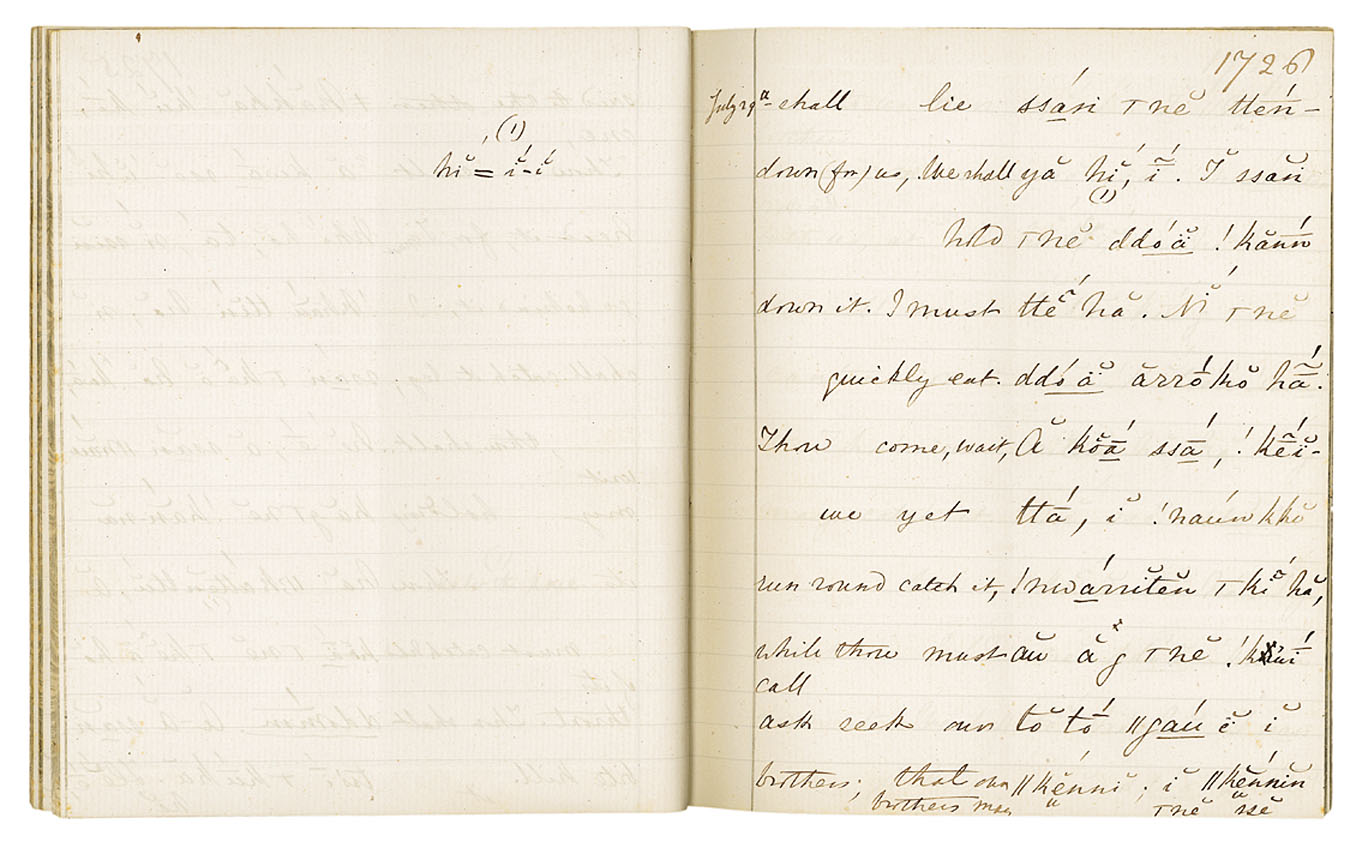 (1)
hĭ = ĭ-í
1726
July 29th shall lie ssá̱ṅ ꞇ nĕ ttéń-
down (for) us, We shall yă hĭ́, ĭ̄́. Ĭ ssăṅ
(1)
hold ꞇ nĕ ddó̱á̤ ! kănń
down it. I must ttĕ́ hă. Ń̆ ꞇ nĕ
quickly eat. ddó̱ă̤ ărrókŏ hā̃́.
Thou come, wait, Ă kŏā̱́ ssā̱́, ! kḗ̃ĭ-
we yet ttā́, ĭ !naúṉkkŏ
run round catch it, !nwá̱rrĭtĕn ꞇ kĭ́ hă,
while thou must au ă g ꞇ nĕ !
call
ask seek our tŏ tó ǁga̱ú ĕ̤ ĭ
brothers; that our ǁkĕ́nnĭ; ĭ ǁkĕ́nnĭn
brothers may ꞇ nĕ ssĕ